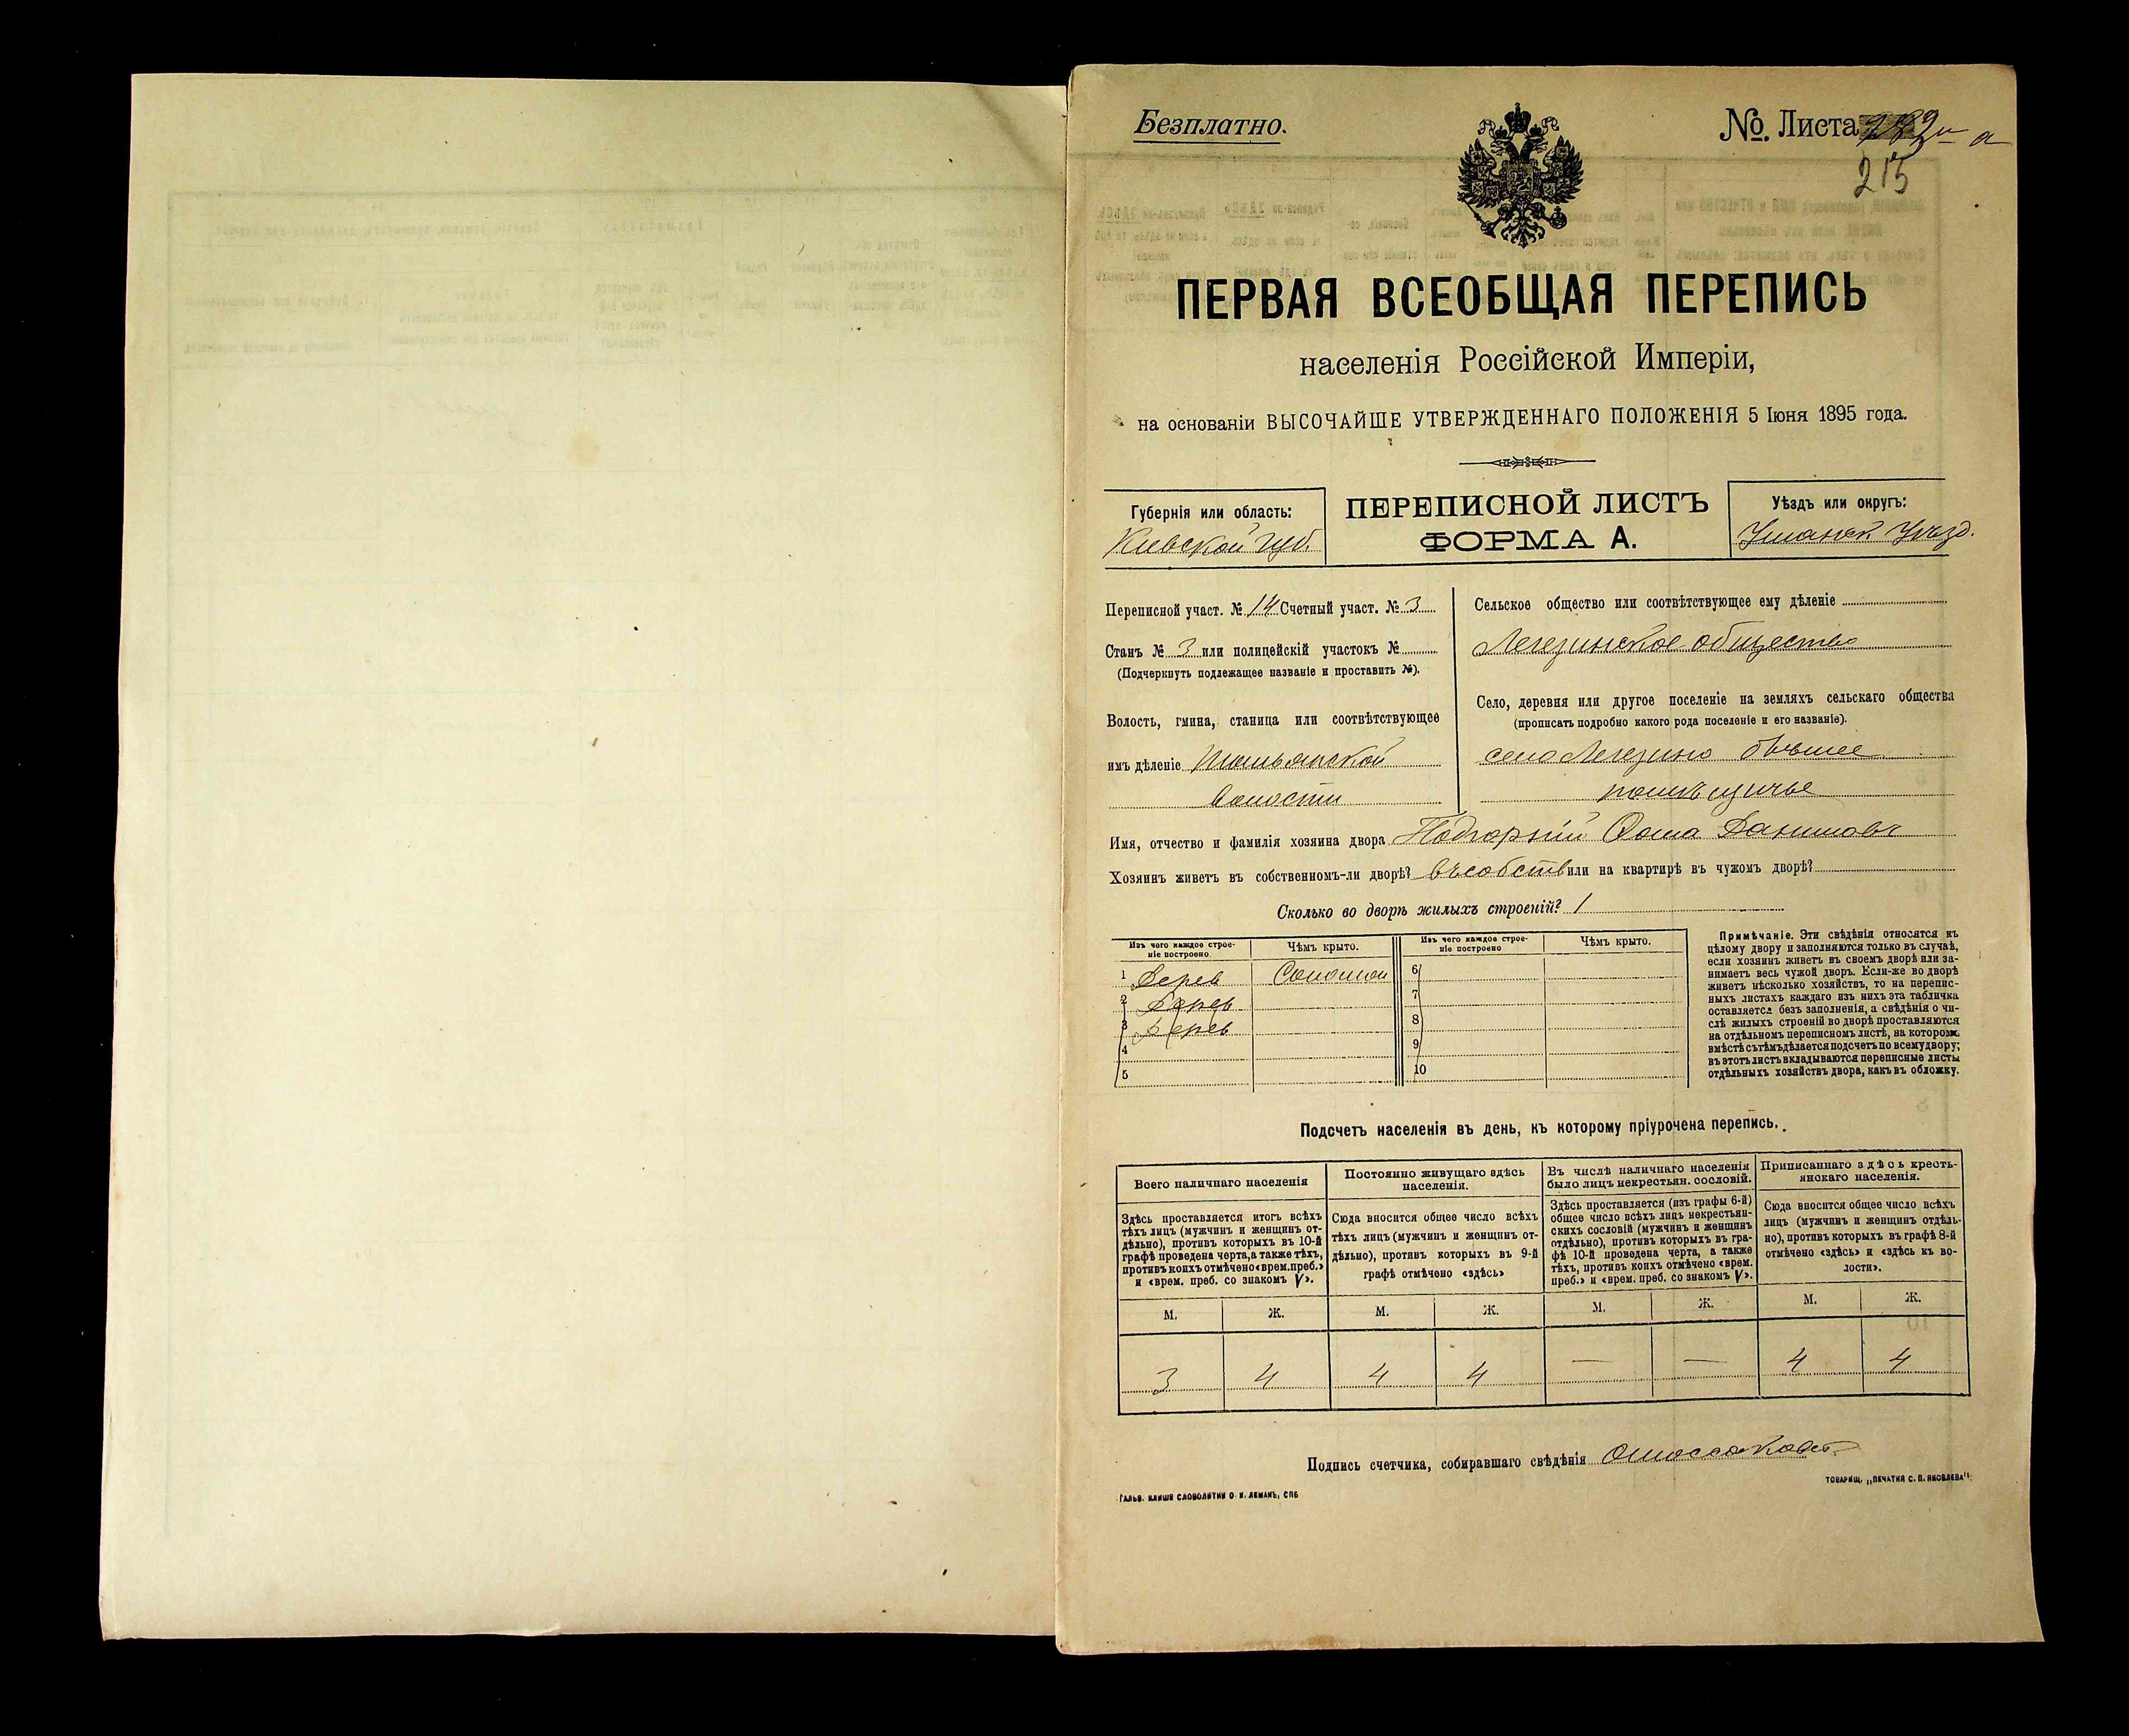 Безплатно.
№. Листа
215
ПЕРВАЯ ВСЕОБЩАЯ ПЕРЕПИСЬ
населенія Россійской Имперіи,
на основаніи ВЫСОЧАЙШЕ УТВЕРЖДЕННАГО ПОЛОЖЕНІЯ 5 Іюня 1895 года.
Губернія или область:
Кіевской губ.
ПЕРЕПИСНОЙ ЛИСТЪ
ФОРМА А.
Уѣздъ или округъ:
Уманск Уѣзд.
Переписной участ. № 14 Счетный участ. № 3
Станъ № 3 или полицейскій участокъ №
(Подчеркнуть подлежащее названіе и проставить №).
Волость, гмина, станица или соотвѣтствующее
имъ дѣленіе
волости
Сельское общество или соотвѣтствующее ему дѣленіе
Легезинское общество
Село, деревня или другое поселеніе на земляхъ сельскаго общества
(прописать подробно какого рода поселеніе и его названіе).
село Легезино бывшее
помѣщичье
Имя, отчество и фамилія хозяина двора Подгорній Фома Даниловъ
Хозяинъ живетъ въ собственномъ-ли дворѣ? въ собств или на квартирѣ въ чужомъ дворѣ?
Сколько во дворѣ жилыхъ строеній? 1
Изъ чего каждое строе-
ніе построено
Чѣмъ крыто.
Изъ чего каждое строе-
ніе построено
Чѣмъ крыто.
1 Дерев Соломой 6
2 Дерев 7
3 Дерев 8
4 9
5 10
Примѣчаніе. Эти свѣдѣнія относятся къ
цѣлому двору и заполняются только въ случаѣ,
если хозяинъ живетъ въ своемъ дворѣ или за-
нимаетъ весь чужой дворъ. Если-же во дворѣ
живетъ нѣсколько хозяйствъ, то на перепис-
ныхъ листахъ каждаго изъ нихъ эта табличка
оставляется безъ заполненія, а свѣдѣнія о чи-
слѣ жилыхъ строеній во дворѣ проставляются
на отдѣльномъ переписномъ листѣ, на которомъ
вмѣстѣ съ тѣмъ дѣлается подсчетъ по всему двору;
въ этотъ листъ вкладываются переписные листы
отдѣльныхъ хозяйствъ двора, какъ въ обложку.
Подсчетъ населенія въ день, къ которому пріурочена перепись.
Всего наличнаго населенія
Здѣсь проставляется итогъ всѣхъ
тѣхъ лицъ (мужчинъ и женщинъ от-
дѣльно), противъ которыхъ въ 10-й
графѣ проведена черта, а также тѣхъ,
противъ коихъ отмѣчено «врем. преб.»
и «врем. преб. со знакомъ V».
Постоянно живущаго здѣсь
населенія.
Сюда вносится общее число всѣхъ
тѣхъ лицъ (мужчинъ и женщинъ от-
дѣльно), противъ которыхъ въ 9-й
графѣ отмѣчено «здѣсь»
Въ числѣ наличнаго населенія
было лицъ некрестьян. сословій.
Здѣсь проставляется (изъ графы 6-й)
общее число всѣхъ лицъ некрестьян-
скихъ сословій (мужчинъ и женщинъ
отдѣльно), противъ которыхъ въ гра-
фѣ 10-й проведена черта, а также
тѣхъ, противъ коихъ отмѣчено «врем.
преб.» и «врем. преб. со знакомъ V».
Приписаннаго здѣсь кресть-
янскаго населенія.
Сюда вносится общее число всѣхъ
лицъ (мужчинъ и женщинъ отдѣль-
но), противъ которыхъ въ графѣ 8-й
отмѣчено «здѣсь» и «здѣсь къ во-
лости».
М. Ж. М. Ж. М. Ж. М. Ж.
3 4 4 4 — — 4 4
Подпись счетчика, собиравшаго свѣдѣнія
ГАЛЬВ. КЛИШЕ СЛОВОЛИТНИ О. И. ЛЕМАНЪ, СПБ
ТОВАРИЩ. „ПЕЧАТНЯ С. П. ЯКОВЛЕВА"